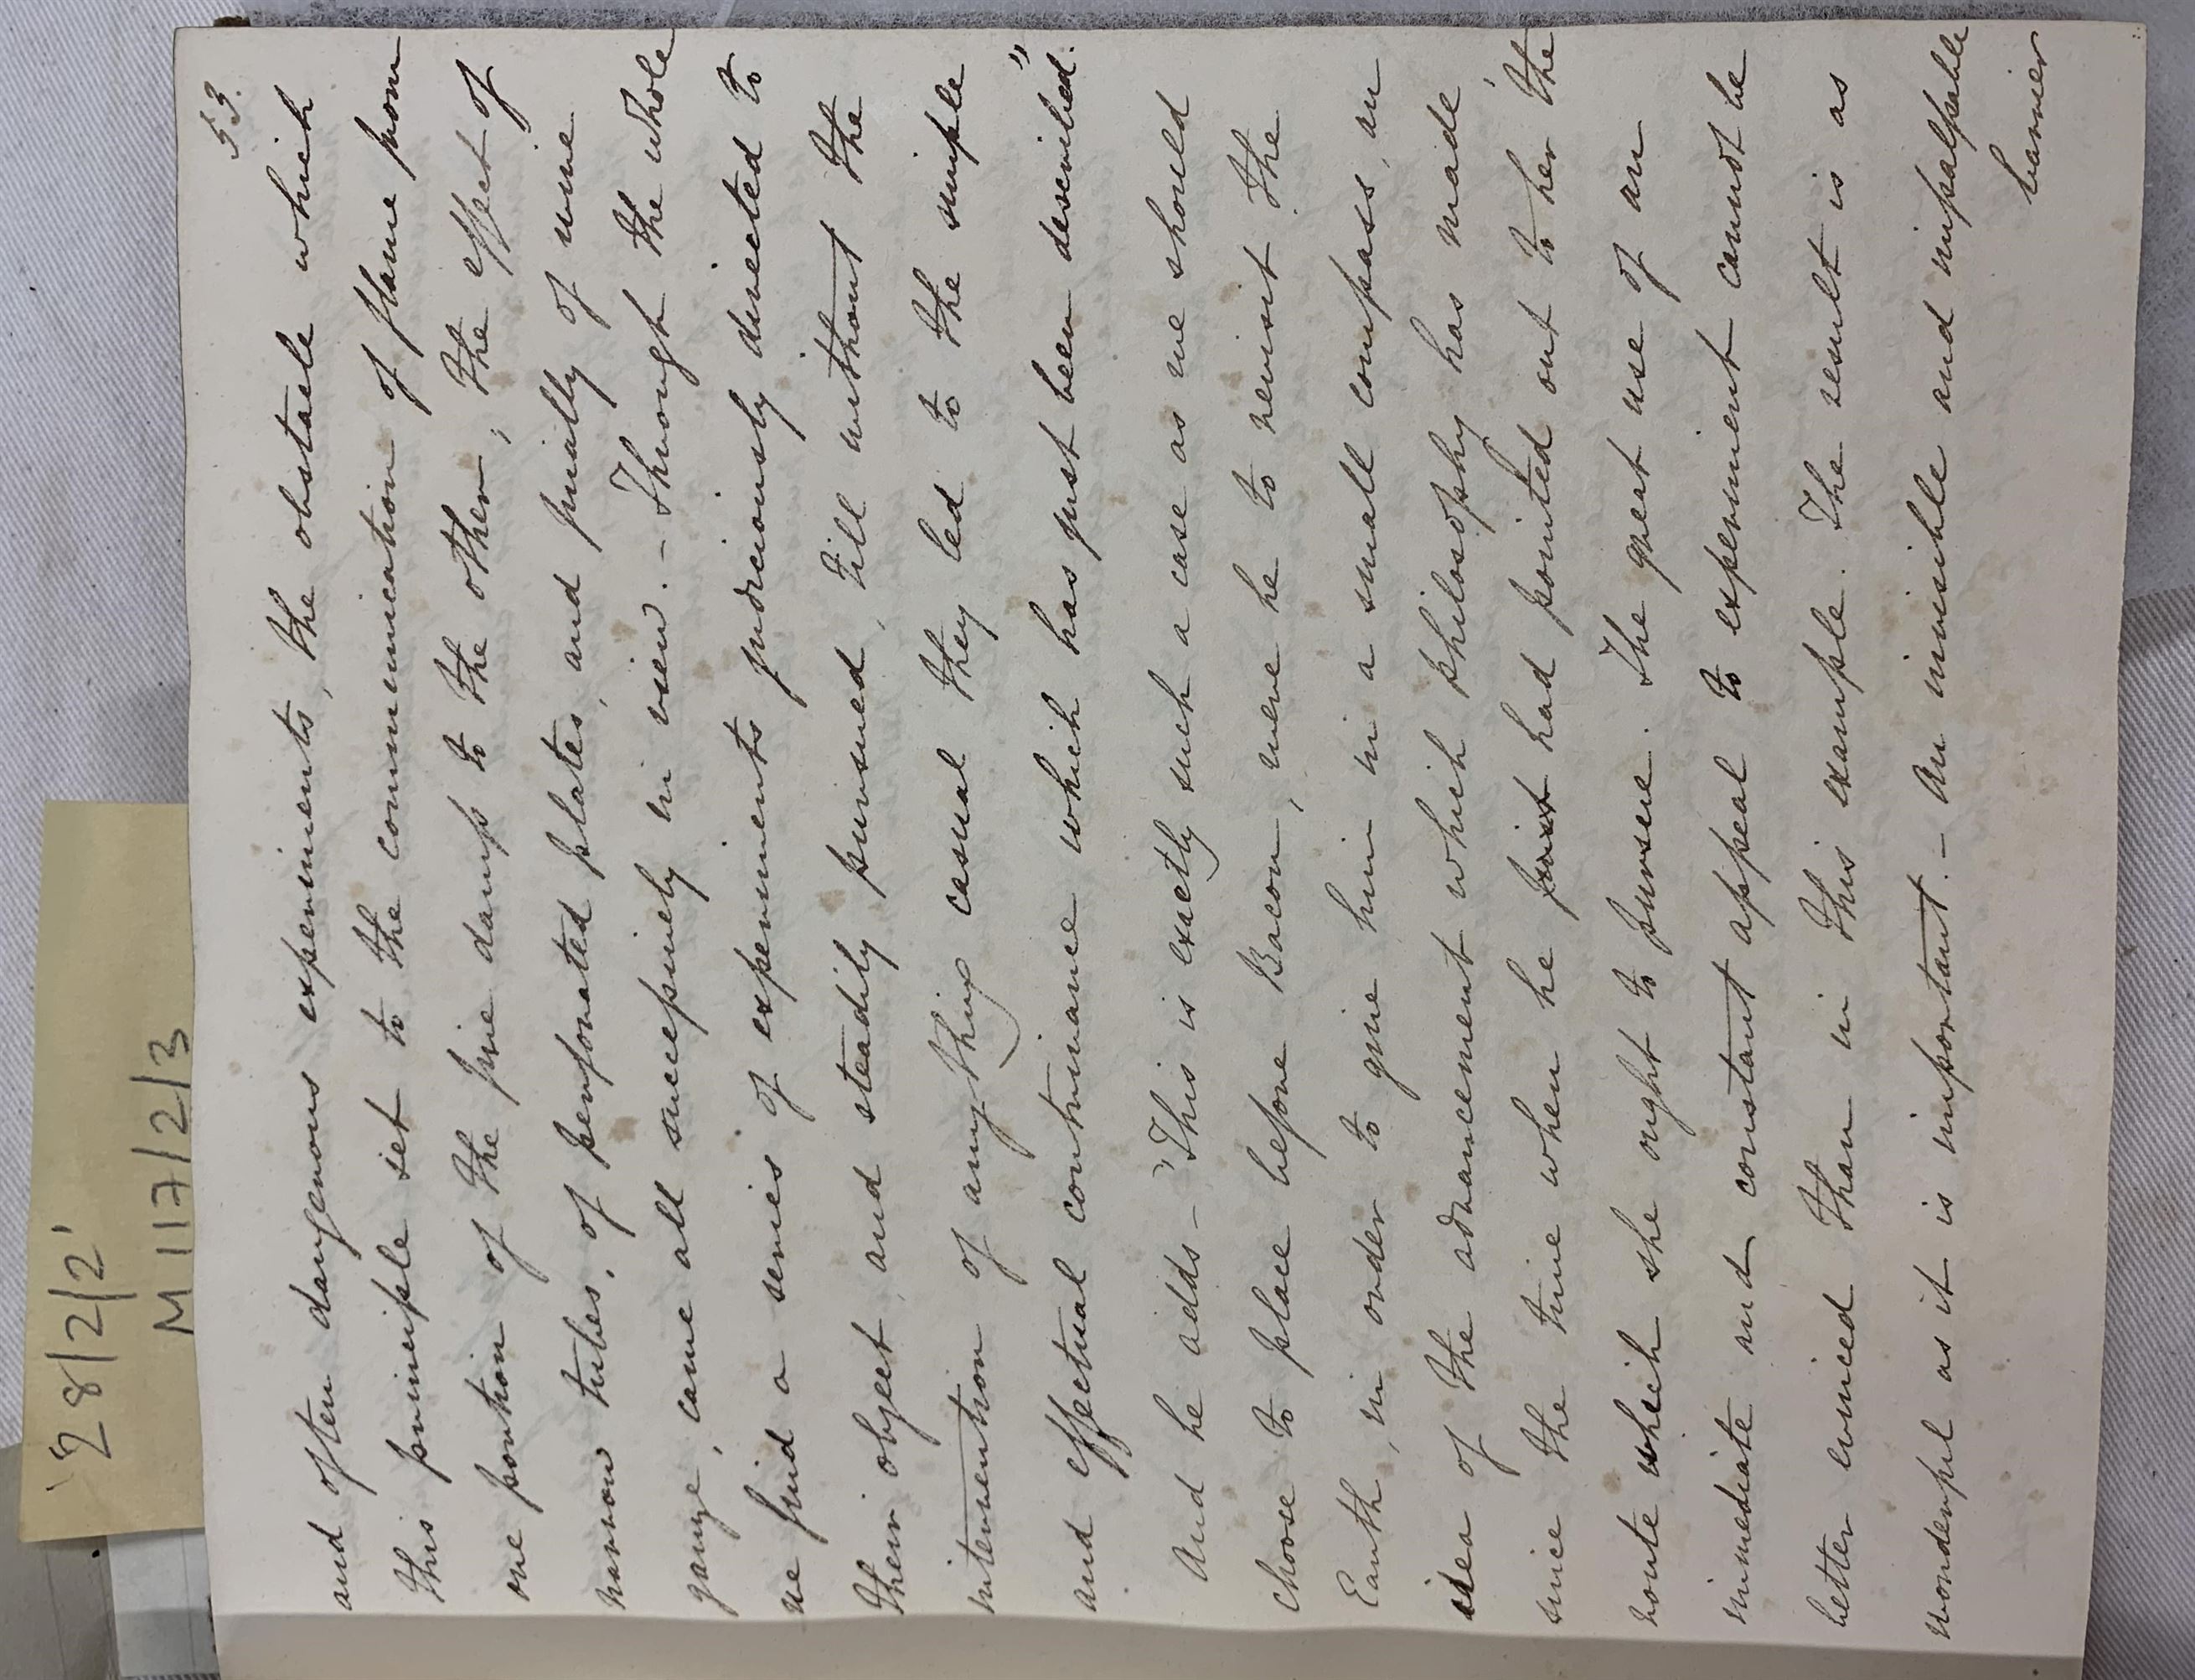 '28/2/2'
M117/2/3
53.
and often dangerous experiments, the obstacle which
this principle set to the communication of flame from
one portion of the fire damp to the other; the effect of
narrow tubes, of perforated plates, and finally of wire
gauze, came all successively in view. – Through the whole
we find a series of experiments judiciously directed to
their object, and steadily pursued, till without the
intervention of anything casual they led to the simple
and effectual contrivance which has just been described."
And he adds – "This is exactly such a case as we should
choose to place before Bacon, were he to revisit the
Earth, in order to give him in a small compass, an
idea of the advancement which philosophy has made
since the time when he first had pointed out to her the
route which she ought to pursue. The great use of an
immediate and constant appeal to experiment cannot be
better evinced than in this example. The result is as
wonderful as it is important. – An invisible and impalpable
barrier